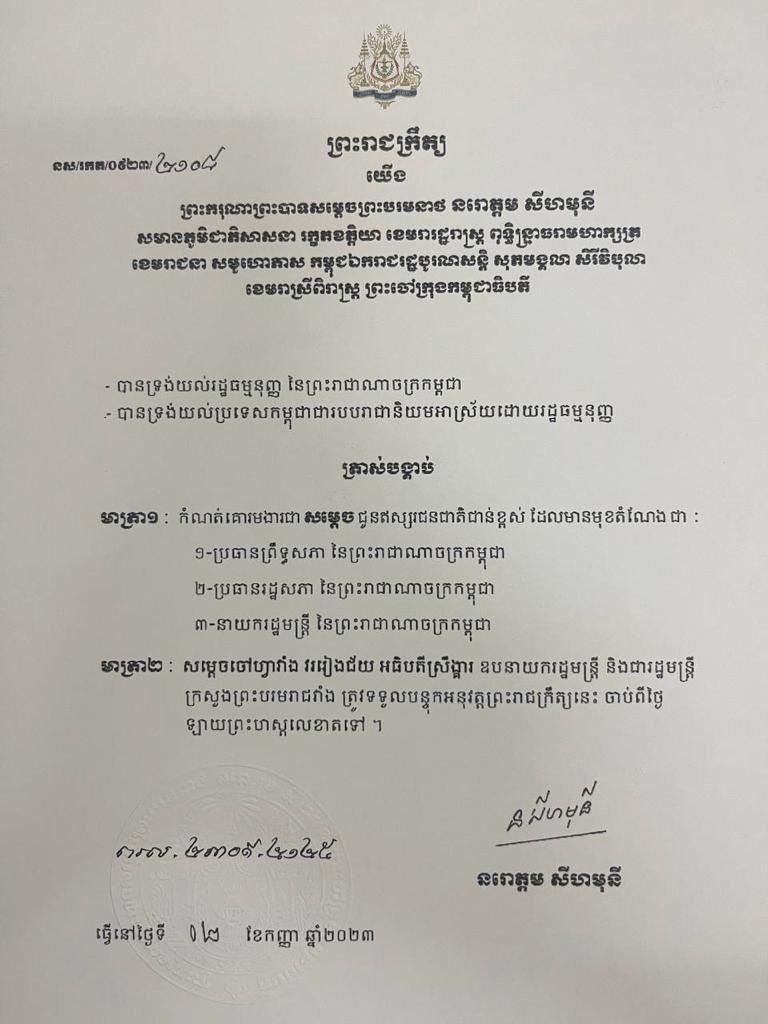 ព្រះរាជក្រឹត្យ
នស/រកត/០៩២៣/២១០៨
យើង
ព្រះករុណាព្រះបាទសម្តេចព្រះបរមនាថ នរោត្តម សីហមុនី
សមានភូមិជាតិសាសនា រក្ខតខត្តិយា ខេមរារដ្ឋរាស្ត្រ ពុទ្ធិន្ទ្រាធរាមហាក្សត្រ
ខេមរាជនា សមូហោភាស កម្ពុជឯករាជរដ្ឋបូរណសន្តិ សុភមង្គលា សិរីវិបុលា
ខេមរាស្រីពិរាស្ត្រ ព្រះចៅក្រុងកម្ពុជាធិបតី
- បានទ្រង់យល់រដ្ឋធម្មនុញ្ញ នៃព្រះរាជាណាចក្រកម្ពុជា
- បានទ្រង់យល់ប្រទេសកម្ពុជាជារបបរាជានិយមអាស្រ័យដោយរដ្ឋធម្មនុញ្ញ
ត្រាស់បង្គាប់
មាត្រា១ : កំណត់គោរមងារជា សម្តេច ជូនឥស្សរជនជាតិជាន់ខ្ពស់ ដែលមានមុខតំណែង ជា :
១-ប្រធានព្រឹទ្ធសភា នៃព្រះរាជាណាចក្រកម្ពុជា
២-ប្រធានរដ្ឋសភា នៃព្រះរាជាណាចក្រកម្ពុជា
៣-នាយករដ្ឋមន្ត្រី នៃព្រះរាជាណាចក្រកម្ពុជា
មាត្រា២ : សម្តេចចៅហ្វាវាំង វររៀងជ័យ អធិបតីស្រឹង្គារ ឧបនាយករដ្ឋមន្ត្រី និងជារដ្ឋមន្ត្រី
ក្រសួងព្រះបរមរាជវាំង ត្រូវទទួលបន្ទុកអនុវត្តព្រះរាជក្រឹត្យនេះ ចាប់ពីថ្ងៃ
ឡាយព្រះហស្តលេខាតទៅ ។
ន សីហមុនី
ពរល. ២៣០៩.២១២៥
នរោត្តម សីហមុនី
ធ្វើនៅថ្ងៃទី ០២ ខែកញ្ញា ឆ្នាំ២០២៣